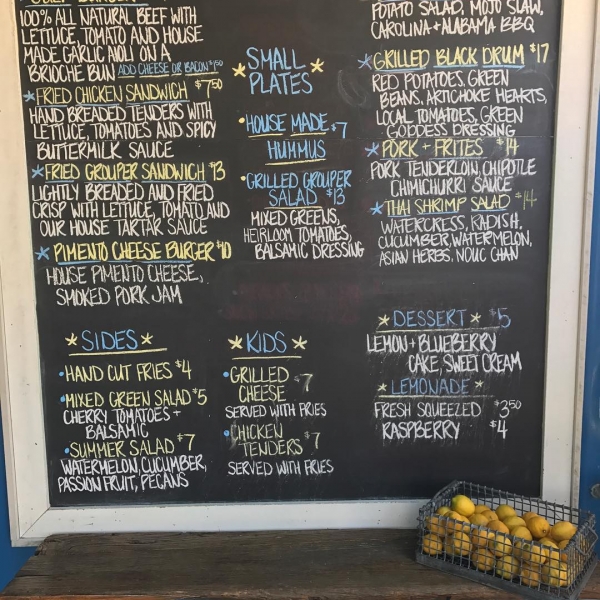 100% ALL NATURAL BEEF WITH
LETTUCE, TOMATO AND HOUSE
MADE GARLIC AIOLI ON A
BRIOCHE BUN ADD CHEESE OR BACON $1.50
FRIED CHICKEN SANDWICH $7.50
HAND BREADED TENDERS WITH
LETTUCE, TOMATOES AND SPICY
BUTTERMILK SAUCE
FRIED GROUPER SANDWICH $13
LIGHTLY BREADED AND FRIED
CRISP WITH LETTUCE, TOMATO AND
OUR HOUSE TARTAR SAUCE
PIMENTO CHEESE BURGER $10
HOUSE PIMENTO CHEESE,
SMOKED PORK JAM
SMALL
PLATES
HOUSE MADE $7
HUMMUS
GRILLED GROUPER
SALAD $13
MIXED GREENS,
HEIRLOOM TOMATOES,
BALSAMIC DRESSING
POTATO SALAD, MOJO SLAW,
CAROLINA + ALABAMA BBQ
GRILLED BLACK DRUM $17
RED POTATOES, GREEN
BEANS, ARTICHOKE HEARTS,
LOCAL TOMATOES, GREEN
GODDESS DRESSING
PORK + FRITES $14
PORK TENDERLOIN, CHIPOTLE
CHIMICHURRI SAUCE
THAI SHRIMP SALAD $14
WATERCRESS, RADISH,
CUCUMBER, WATERMELON,
ASIAN HERBS, NOUC CHAN
SIDES
HAND CUT FRIES $4
MIXED GREEN SALAD $5
CHERRY TOMATOES +
BALSAMIC
SUMMER SALAD $7
WATERMELON, CUCUMBER,
PASSION FRUIT, PECANS
KIDS
GRILLED
CHEESE $7
SERVED WITH FRIES
CHICKEN
TENDERS $7
SERVED WITH FRIES
DESSERT $5
LEMON + BLUEBERRY
CAKE, SWEET CREAM
LEMONADE
FRESH SQUEEZED $3.50
RASPBERRY $4